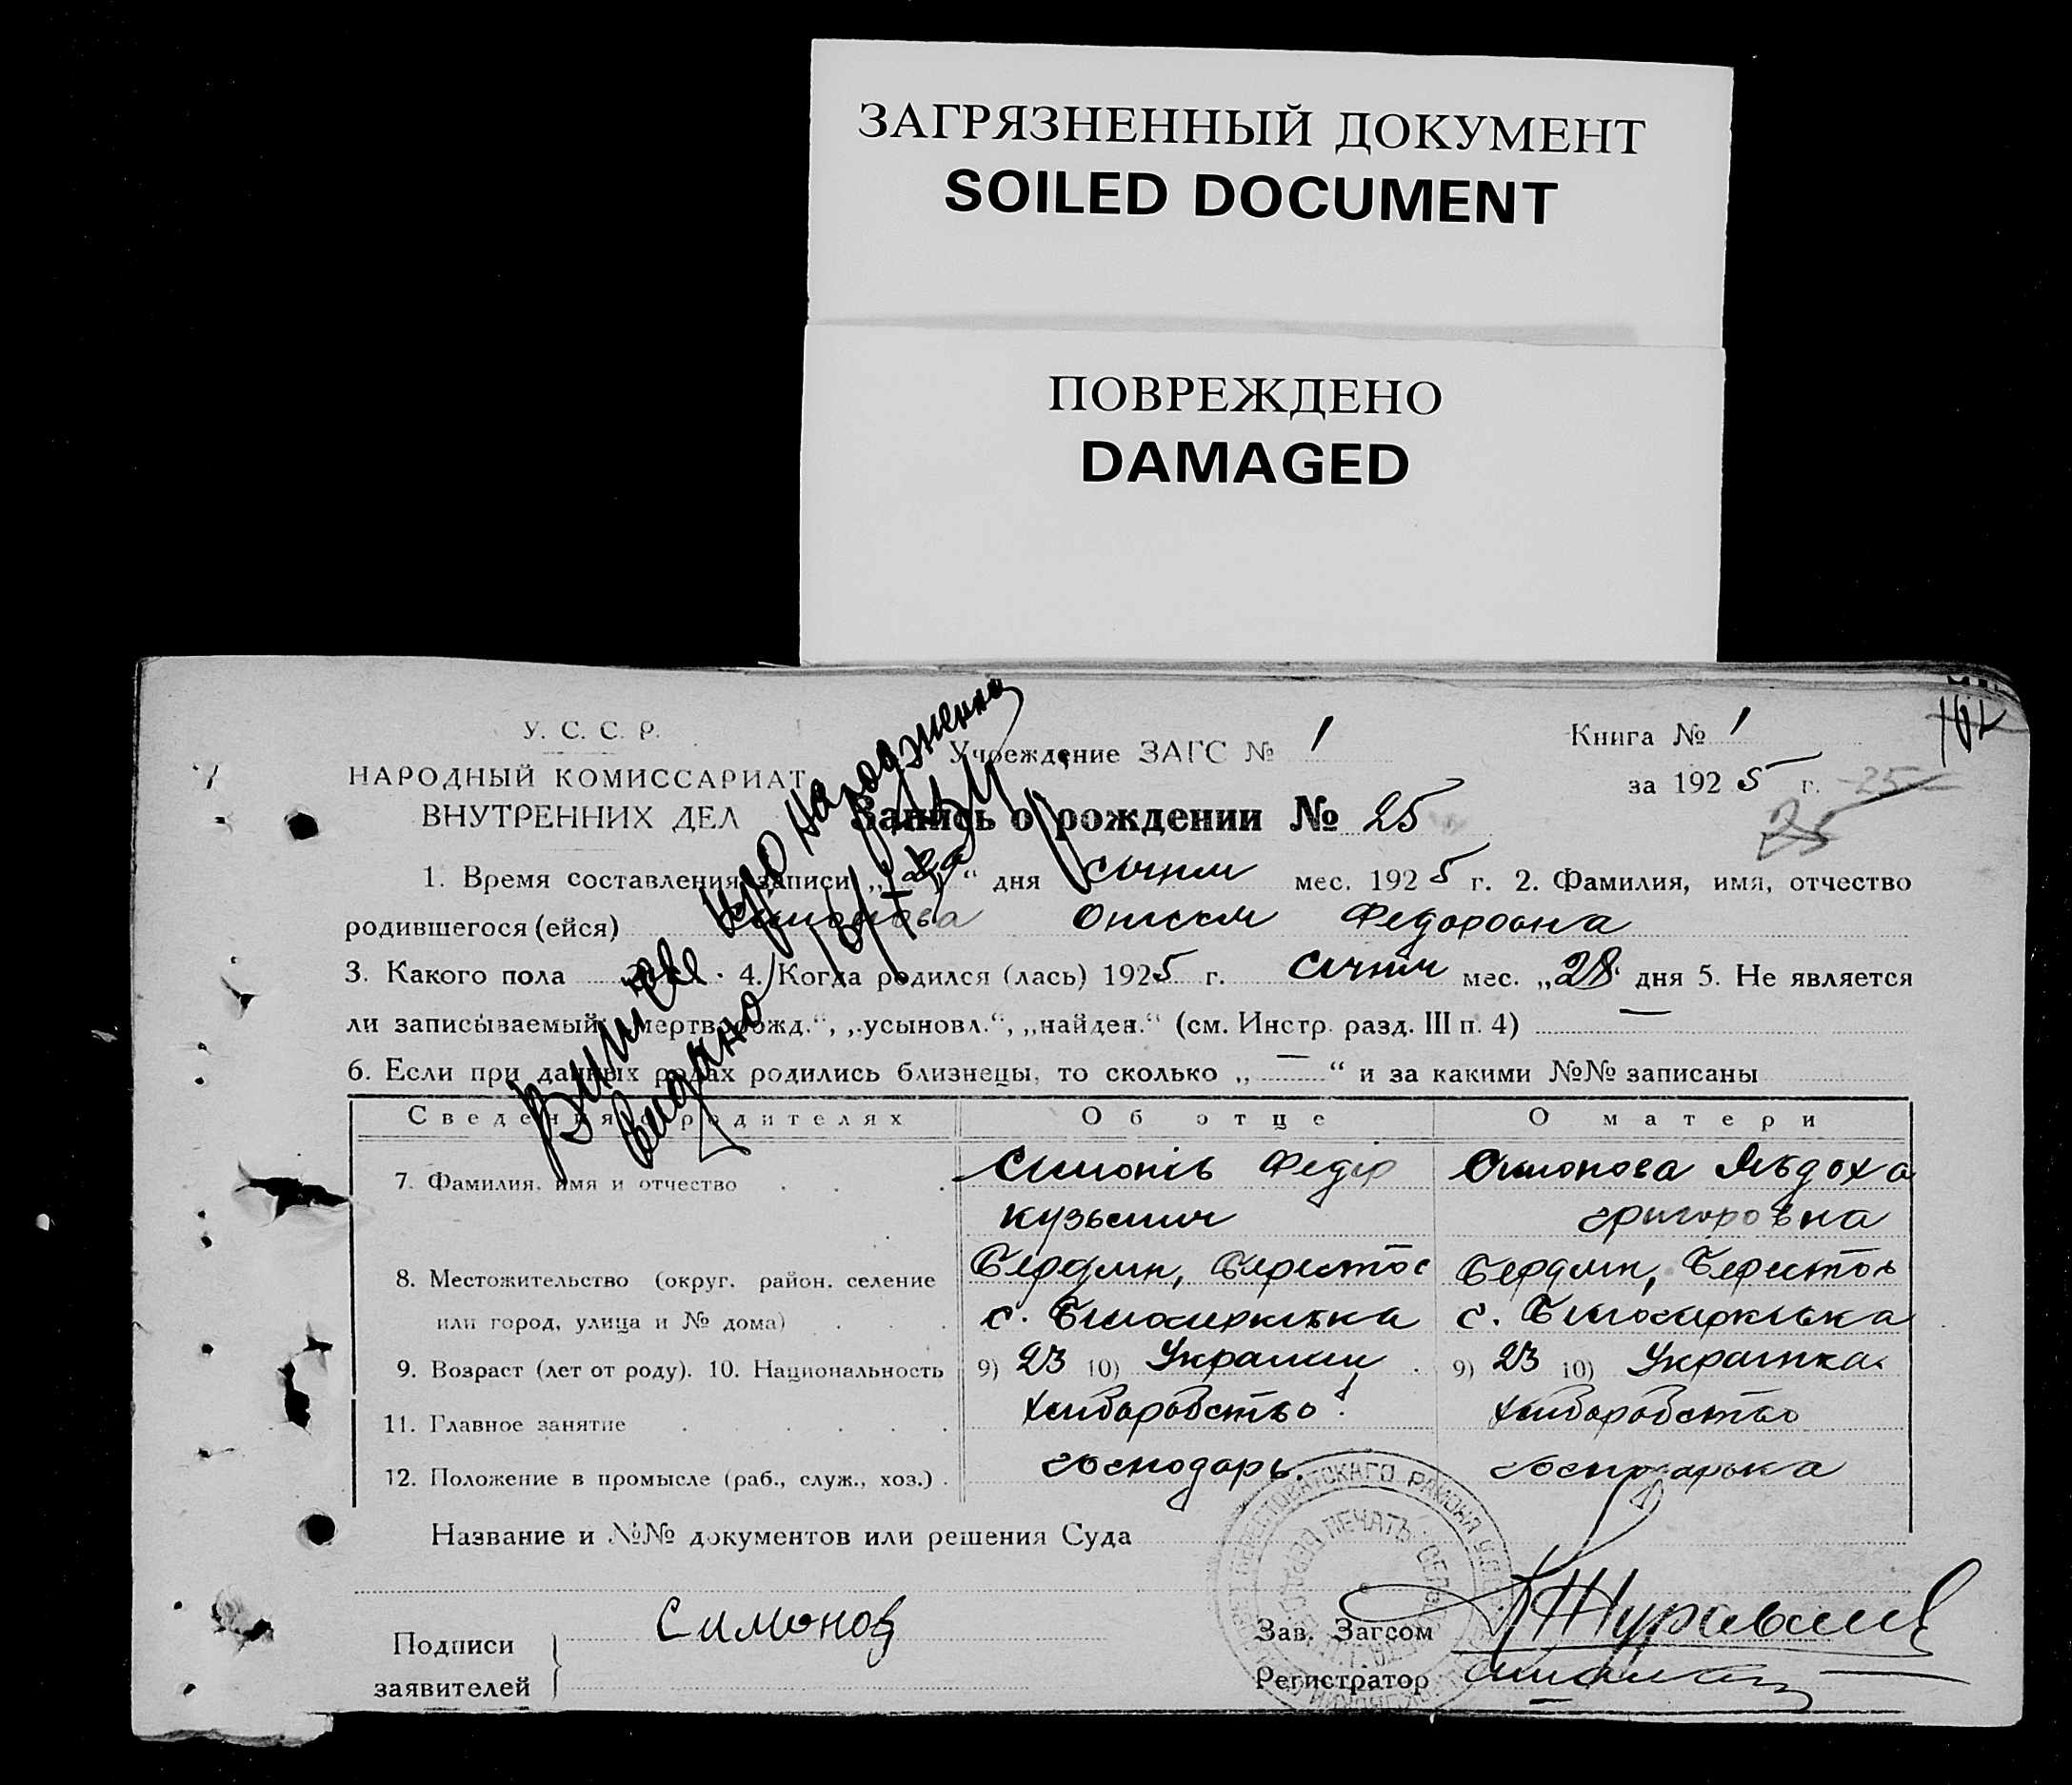 ЗАГРЯЗНЕННЫЙ ДОКУМЕНТ
SOILED DOCUMENT
ПОВРЕЖДЕНО
DAMAGED
У. С. С. Р.
НАРОДНЫЙ КОМИССАРИАТ
ВНУТРЕННИХ ДЕЛ
Учреждение ЗАГС № 1
Книга № 1
за 1925 г. 25
25
Запись о рождении № 25
1. Время составления записи „ “ дня січня мес. 1925 г. 2. Фамилия, имя, отчество
родившегося (ейся) Симонова Федоровна
3. Какого пола 4. Когда родился (лась) 1925 г. січня мес. „28 дня 5. Не является
ли записываемый: „мертворожд.“, „усыновл.“, „найден.“ (см. Инстр. разд. III п. 4) —
6. Если при данных родах родились близнецы, то сколько „—“ и за какими №№ записаны
Сведения о родителях Об отце О матери
7. Фамилия, имя и отчество Симонів Федір Симонова Явдоха
кузьмич григоровна
8. Местожительство (округ, район, селение Бердян, Берестов Бердян, Берестов
или город, улица и № дома) с. с.
9. Возраст (лет от роду). 10. Национальность 9) 23 10) Украинец 9) 23 10) Украинка.
11. Главное занятие хлиборобство хлиборобство
12. Положение в промысле (раб., служ., хоз.) господарь. господарька
Название и №№ документов или решения Суда
Подписи
заявителей
Симонов
Зав. Загсом
Регистратор
Витяг про народження
видано